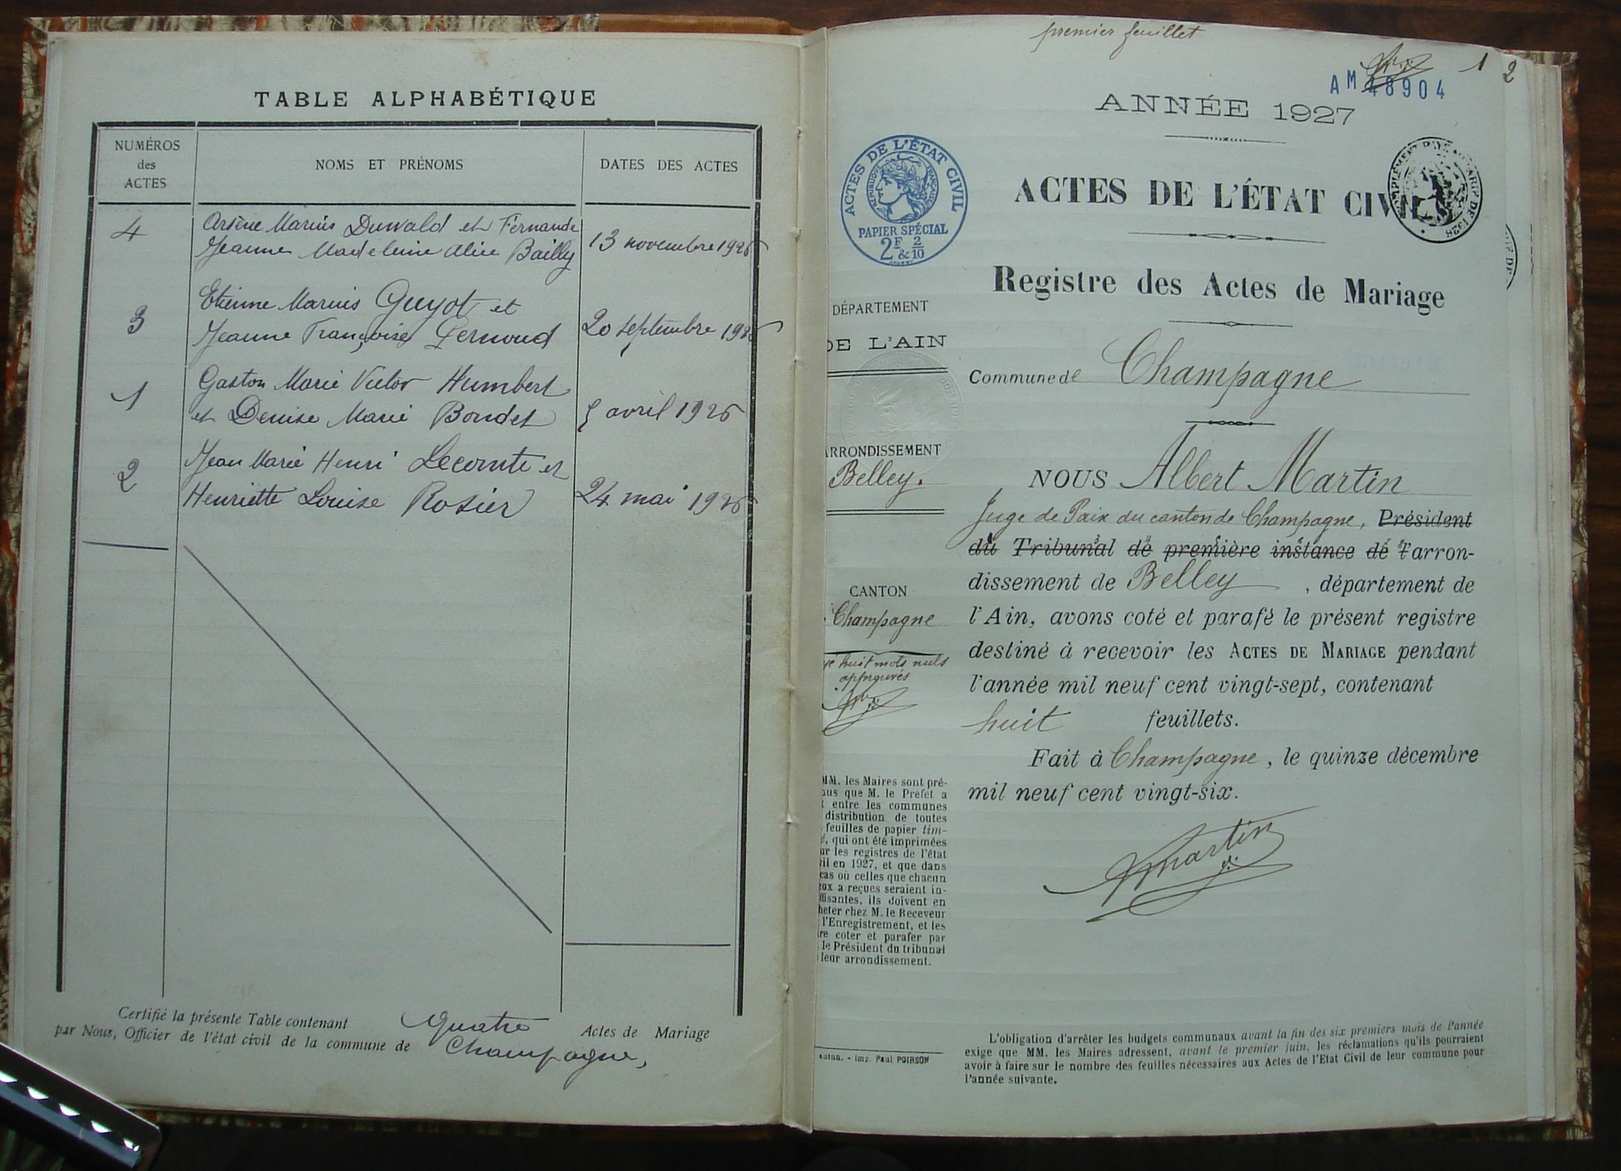 TABLE ALPHABÉTIQUE
NUMÉROS
des
ACTES
NOMS ET PRÉNOMS
DATES DES ACTES
4
Arsène Marius Duwald et Fernande
Jeanne Madeleine Alice Bailly
13 novembre 1926
3
Etienne Marius Guyot et
Jeanne Françoise Lernoud
20 septembre 1926
1
Gaston Marie Victor Humbert
et Denise Marie Bondet
5 avril 1926
2
Jean Marie Henri Lecomte et
Henriette Louise Rosier
24 mai 1926
Certifié la présente Table contenant Quatre Actes de Mariage
par Nous, Officier de l'état civil de la commune de Champagne,
premier feuillet
1 2
AM 48904
ANNÉE 1927
ACTES DE L'ÉTAT CIVIL
PAPIER SPÉCIAL
2F & 2/10
ACTES DE L'ÉTAT CIVIL
Registre des Actes de Mariage
DÉPARTEMENT
DE L'AIN
Commune de Champagne
ARRONDISSEMENT
Belley.
CANTON
Champagne
huit mots nuls
approuvés
NOUS Albert Martin
Juge de Paix du canton de Champagne, Président
du Tribunal de première instance de l'arron-
dissement de Belley, département de
l'Ain, avons coté et parafé le présent registre
destiné à recevoir les ACTES DE MARIAGE pendant
l'année mil neuf cent vingt-sept, contenant
huit feuillets.
Fait à Champagne, le quinze décembre
mil neuf cent vingt-six.
AMartin
MM. les Maires sont pré-
nus que M. le Préfet a
t entre les communes
distribution de toutes
feuilles de papier tim-
é, qui ont été imprimées
ur les registres de l'état
il en 1927, et que dans
cas où celles que chacun
eux a reçues seraient in-
ffisantes, ils doivent en
heter chez M. le Receveur
l'Enregistrement, et les
re coter et parafer par
le Président du tribunal
leur arrondissement.
Imp. Paul POIRSON
L'obligation d'arrêter les budgets communaux avant la fin des six premiers mois de l'année
exige que MM. les Maires adressent, avant le premier juin, les réclamations qu'ils pourraient
avoir à faire sur le nombre des feuilles nécessaires aux Actes de l'Etat Civil de leur commune pour
l'année suivante.